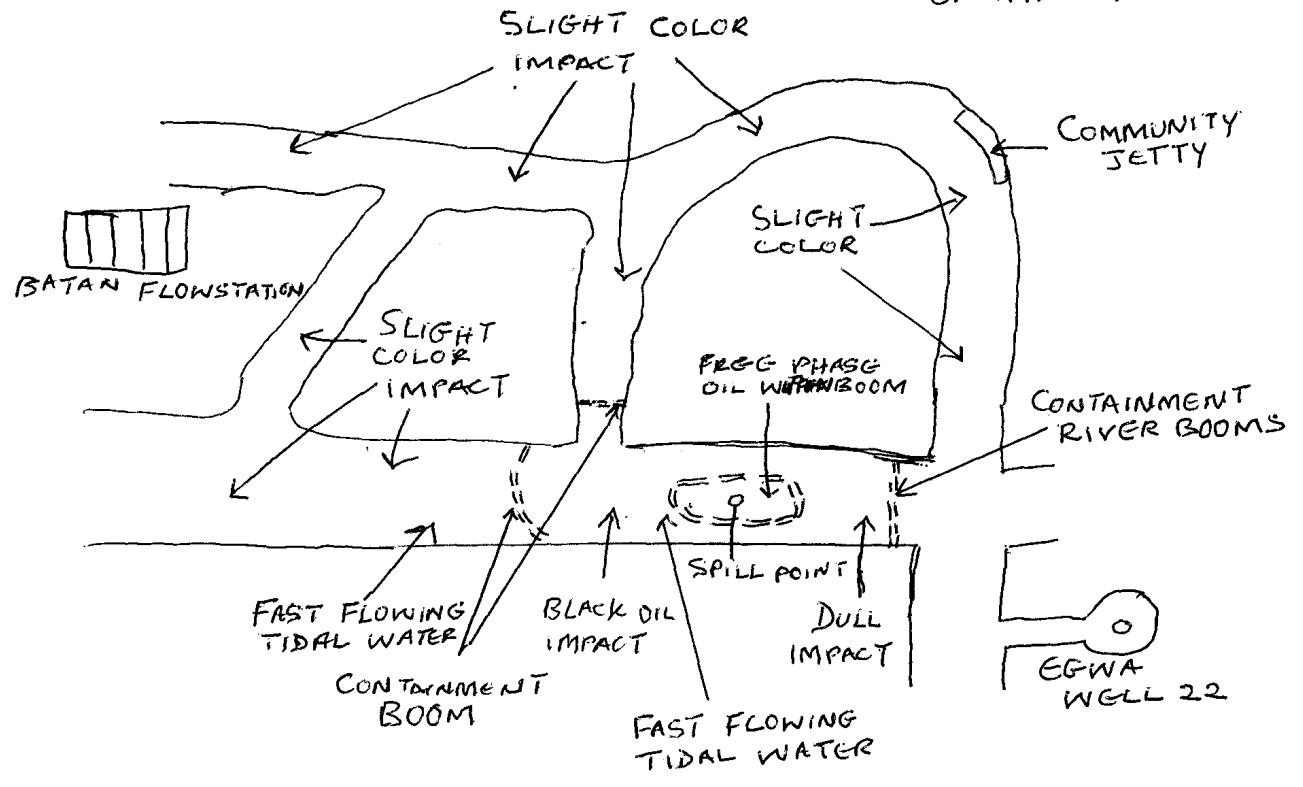 SLIGHT COLOR
IMPACT
COMMUNITY
JETTY
SLIGHT
COLOR
BATAN FLOWSTATION
SLIGHT
COLOR
IMPACT
FREE PHASE
OIL WITHIN BOOM
CONTAINMENT
RIVER BOOMS
SPILL POINT
FAST FLOWING
TIDAL WATER
BLACK OIL
IMPACT
DULL
IMPACT
CONTAINMENT
BOOM
EGWA
WELL 22
FAST FLOWING
TIDAL WATER